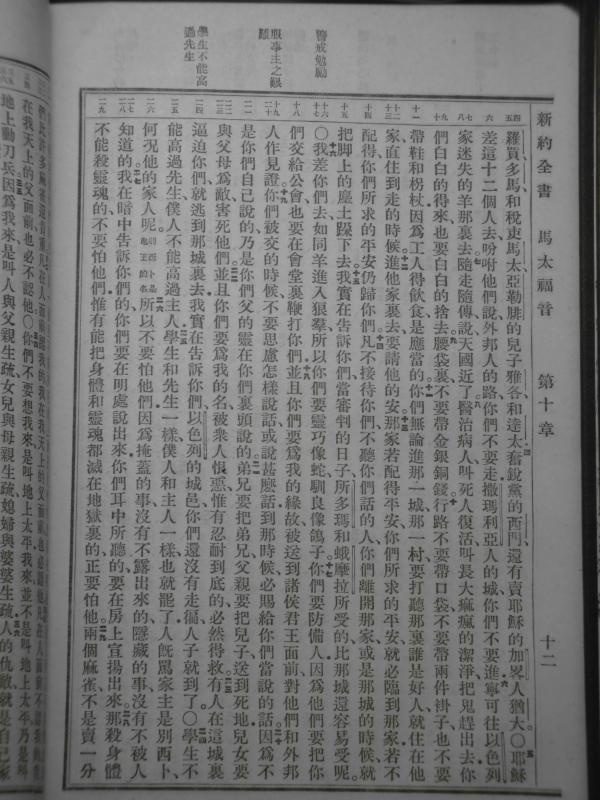 新約全書 馬太福音 第十章 十二
羅買多馬和稅吏馬太亞勒腓的兒子雅各和達太奮銳黨的西門還有賣耶穌的加畧人猶大○耶穌
差這十二個人去吩咐他們說外邦人的路你們不要走撒瑪利亞人的城你們不要進寧可往以色列
家迷失的羊那裏去隨走隨傳說天國近了醫治病人叫死人復活叫長大痲瘋的潔淨把鬼趕出去你
們白白的得來也要白白的捨去腰袋裏不要帶金銀銅錢行路不要帶口袋不要帶兩件褂子也不要
帶鞋和柺杖因爲工人得飲食是應當的你們無論進那一城那一村要打聽那裏誰是好人就住在他
家直住到走的時候進他家裏去要請他的安那家若配得平安你們所求的平安就必臨到那家若不
配得你們所求的平安仍歸你們凡不接待你們不聽你們話的人你們離開那家或是那城的時候就
把脚上的塵土跺下去我實在告訴你們當審判的日子所多瑪和蛾摩拉所受的比那城還容易受呢
○我差你們去如同羊進入狼羣所以你們要靈巧像蛇馴良像鴿子你們要防備人因爲他們要把你
們交給公會也要在會堂裏鞭打你們並且你們要爲我的緣故被送到諸侯君王面前對他們和外邦
人作見證你們被交的時候不要思慮怎樣說話或說甚麽話到那時候必賜給你們當說的話因爲不
是你們自己說的乃是你們父的靈在你們裏頭說的弟兄要把弟兄父親要把兒子送到死地兒女要
與父母爲敵害死他們並且你們要爲我的名被衆人恨惡惟有忍耐到底的必然得救有人在這城裏
逼迫你們就逃到那城裏去我實在告訴你們以色列的城邑你們還沒有走徧人子就到了○學生不
能高過先生僕人不能高過主人學生和先生一樣僕人和主人一樣也就罷了人既罵家主是別西卜
何況他的家人呢所以不要怕他們因爲掩蓋的事沒有不露出來的隱藏的事沒有不被人
知道的我在暗中告訴你們的你們要在明處說出來你們耳中所聽的要在房上宣揚出來那殺身體
不能殺靈魂的不要怕他們惟有能把身體和靈魂都滅在地獄裏的正要怕他兩個麻雀不是賣一分
警戒勉勵
服事主之艱難
學生不能高過先生
在我天上的父面前也必不認他○你們不要想我來是叫地上太平我來並不是叫地上太平乃是叫
地上動刀兵因爲我來是叫人與父親生疏女兒與母親生疏媳婦與婆婆生疏人的仇敵就是自己家